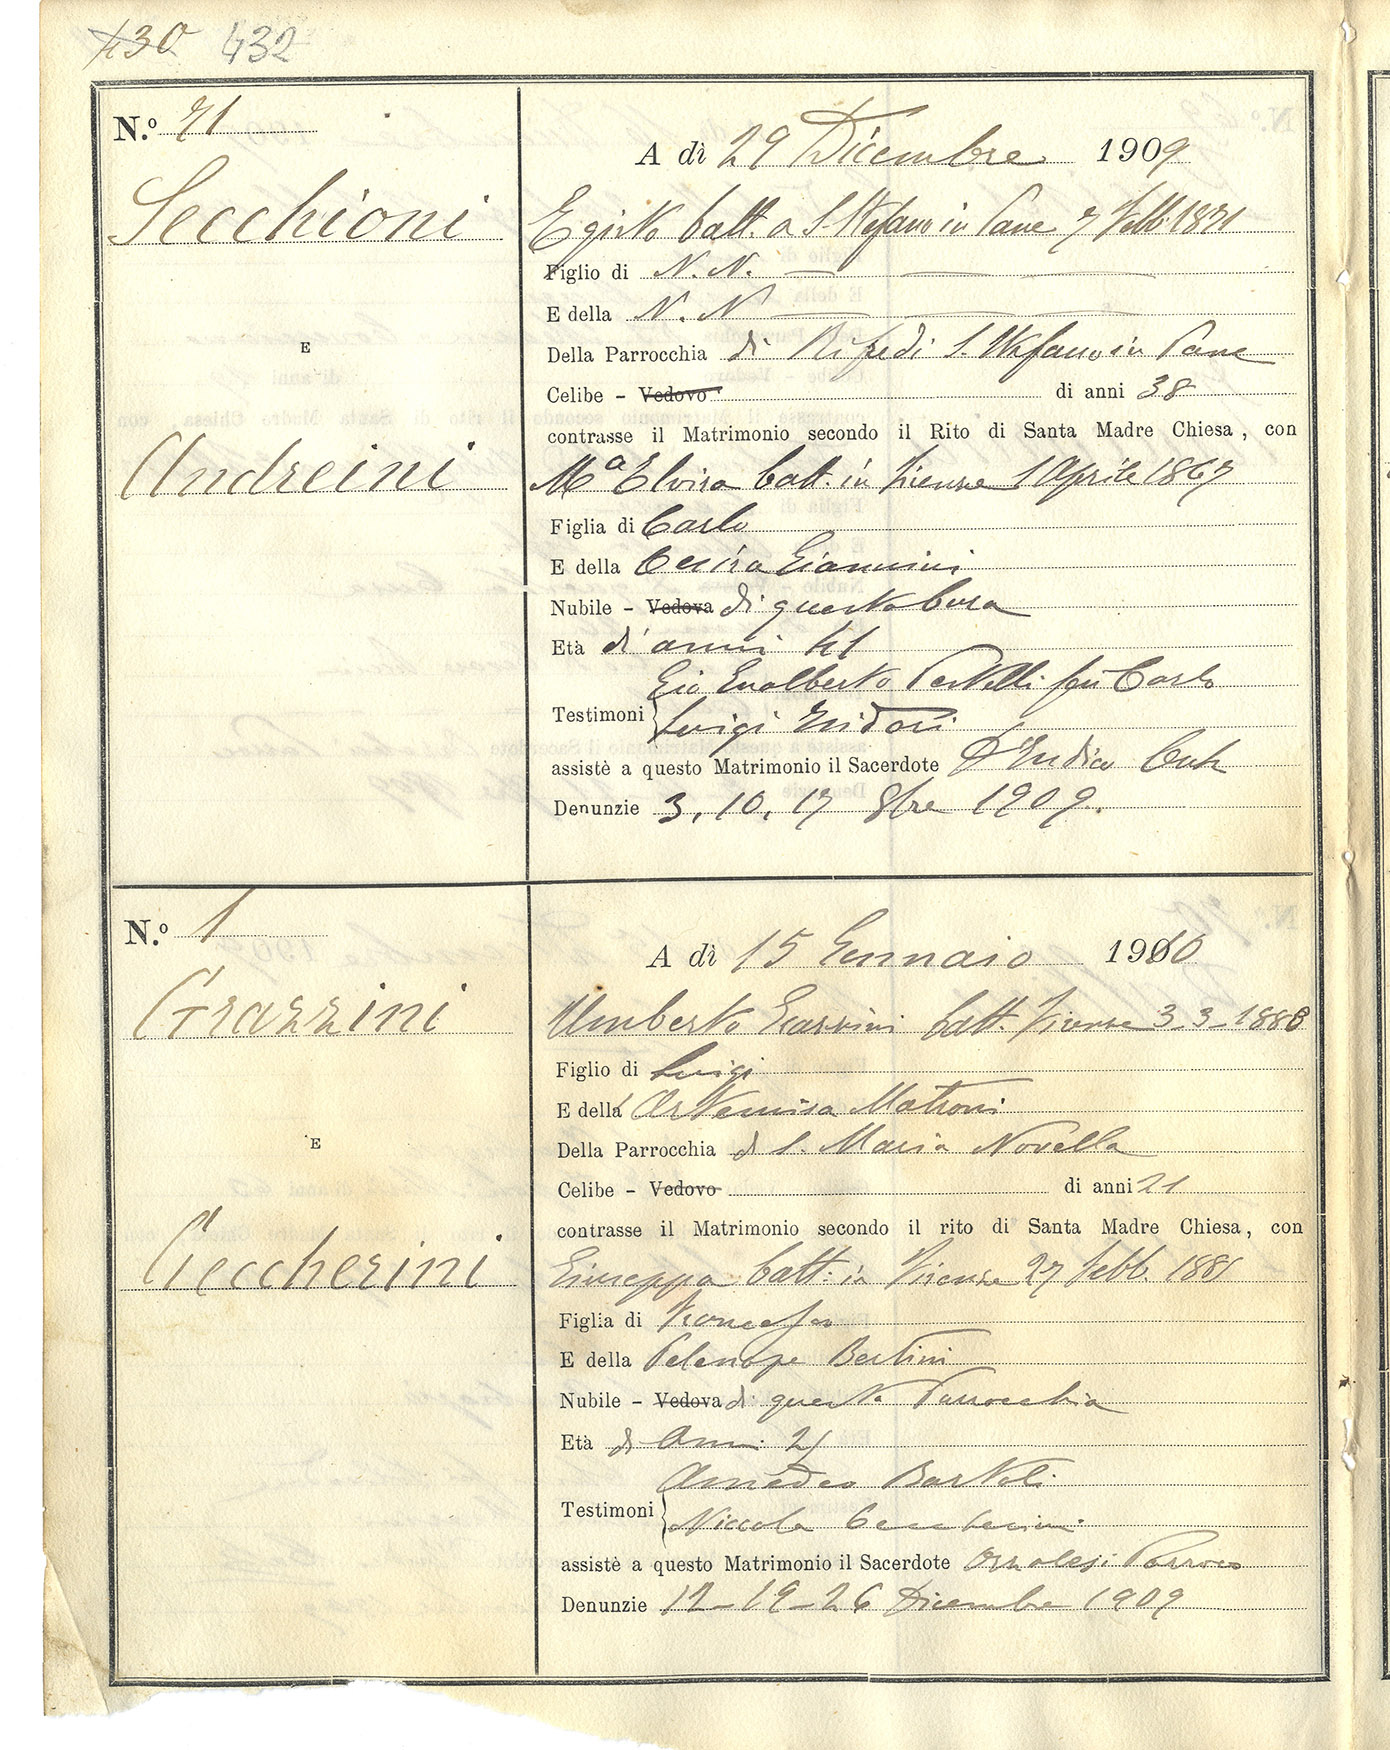 430 432
N.º 71
A dì 29 Dicembre 1909
Secchioni
Egisto batt. a S. Stefano in Pane 7 Febb. 1871
Figlio di N. N.
E della N. N
E
Della Parrocchia di Rifredi S. Stefano in Pane
Celibe - Vedovo di anni 38
contrasse il Matrimonio secondo il Rito di Santa Madre Chiesa, con
Andreini
Mª Elvira batt. in Firenze 1 Aprile 1867
Figlia di Carlo
E della Cesira Giannini
Nubile - Vedova di questa Cura
Età di anni 41
Gio Gualberto Pestelli fu Carlo
Testimoni
Luigi
assistè a questo Matrimonio il Sacerdote
Denunzie 3, 10, 17 8bre 1909.
N.º 1
A dì 15 Gennaio 1910
Grazzini
Umberto Grazzini batt. Firenze 3-3-1888
Figlio di Luigi
E della Artemisa Matroni
E
Della Parrocchia di S. Maria Novella
Celibe - Vedovo di anni 21
contrasse il Matrimonio secondo il rito di Santa Madre Chiesa, con
Ceccherini
Giuseppa batt. in Firenze 27 Febb. 188
Figlia di Francesco
E della Pelenope Bertini
Nubile - Vedova di questa Parrocchia
Età di Anni 21
Amedeo Bartoli
Testimoni
Niccola Ceccherini
assistè a questo Matrimonio il Sacerdote Orzalesi Parroco
Denunzie 12-19-26 Dicembre 1909